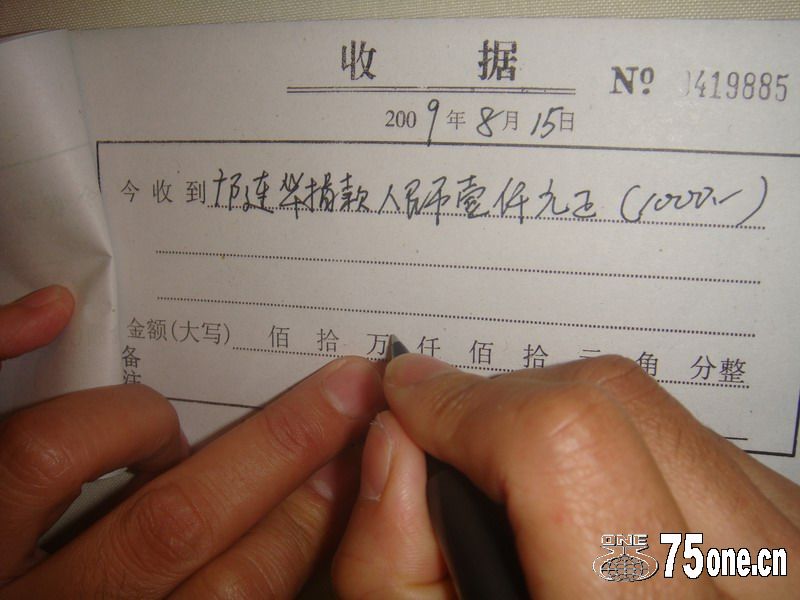 收 据
Nº 0419885
2009年8月15日
今收到邝连华捐款人民币壹仟元正(1000.-)
金额(大写) 佰 拾 万 仟 佰 拾 元 角 分整
备注
ONE 75one.cn